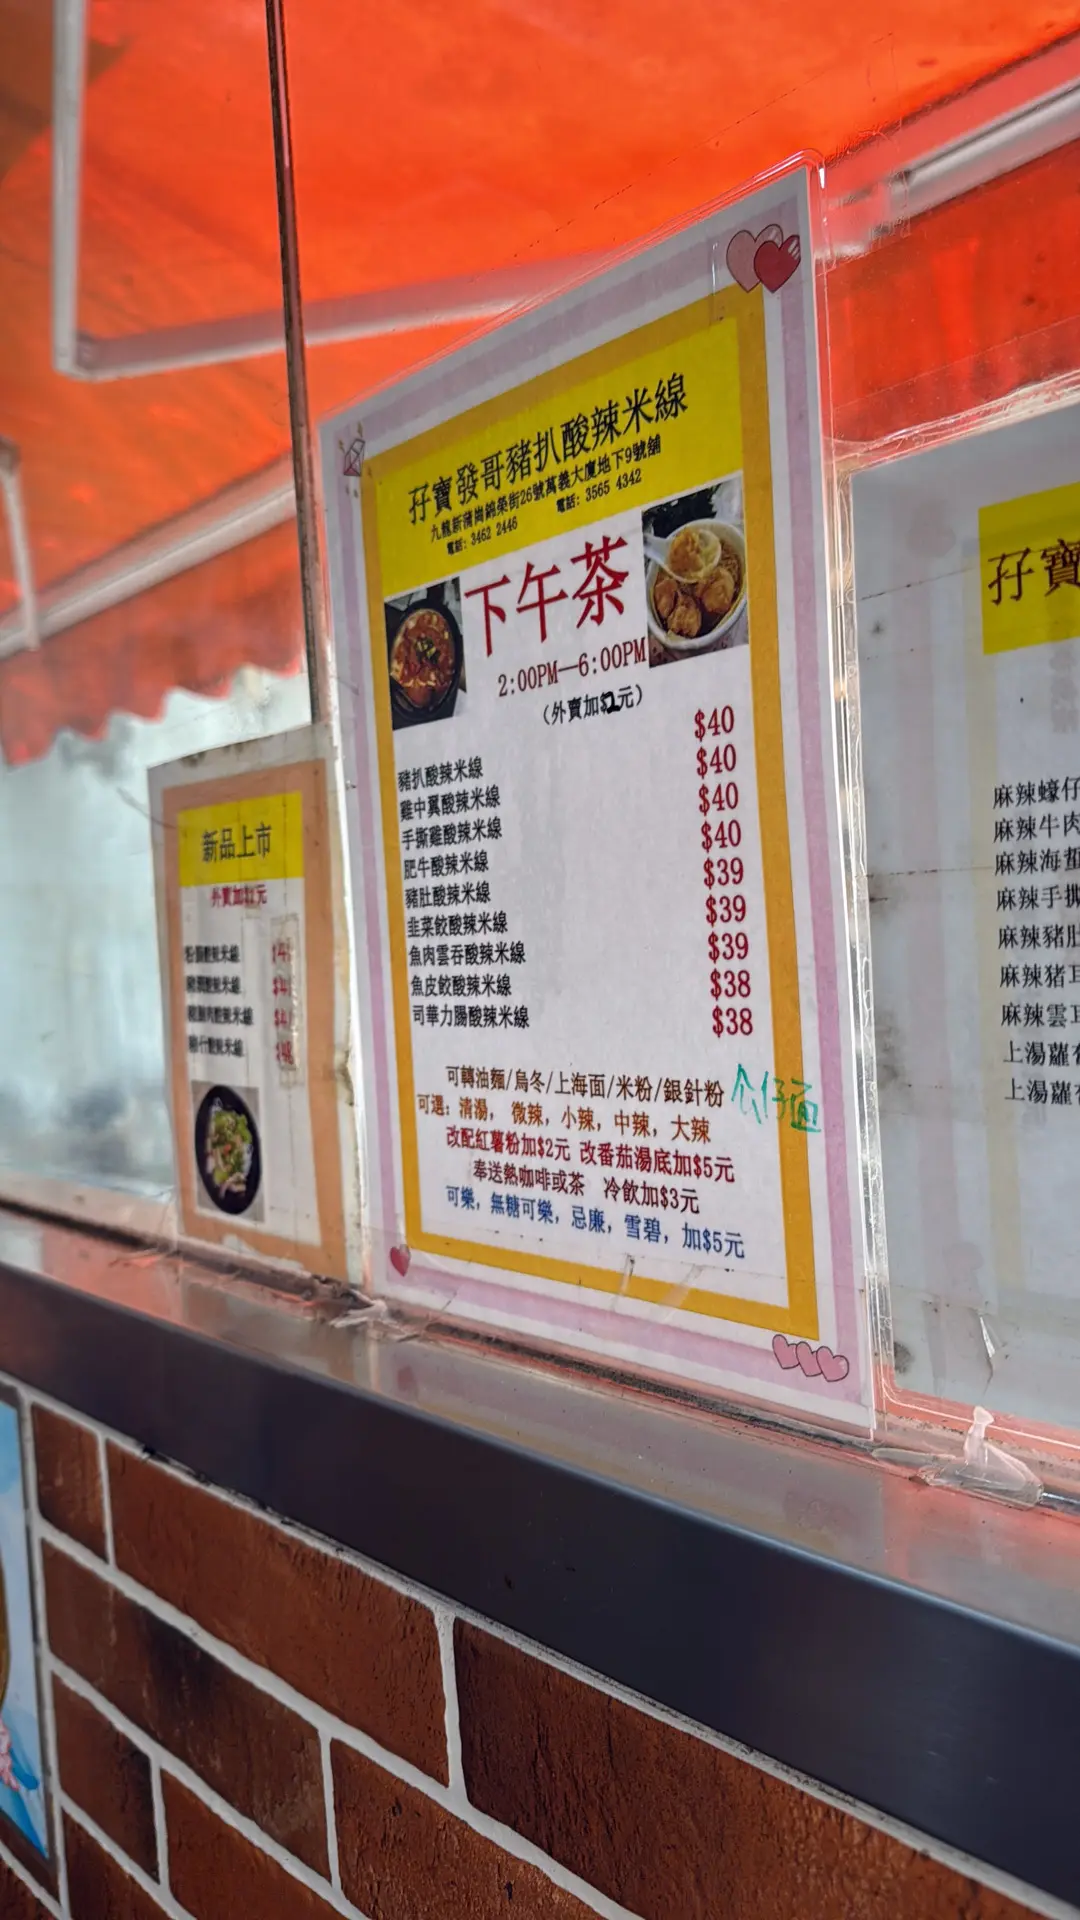 孖寶發哥豬扒酸辣米線
九龍新蒲崗錦榮街26號萬義大廈地下9號舖
電話: 3462 2446 電話: 3565 4342
下午茶
2:00PM—6:00PM
(外賣加$2元)
豬扒酸辣米線 $40
雞中翼酸辣米線 $40
手撕雞酸辣米線 $40
肥牛酸辣米線 $40
豬肚酸辣米線 $39
韭菜餃酸辣米線 $39
魚肉雲吞酸辣米線 $39
魚皮餃酸辣米線 $38
司華力腸酸辣米線 $38
可轉油麵/烏冬/上海面/米粉/銀針粉 公仔面
可選: 清湯, 微辣, 小辣, 中辣, 大辣
改配紅薯粉加$2元 改番茄湯底加$5元
奉送熱咖啡或茶 冷飲加$3元
可樂, 無糖可樂, 忌廉, 雪碧, 加$5元
新品上市
外賣加元
酸辣米線
酸辣米線
酸辣米線
米線
孖寶
麻辣蠔仔
麻辣牛肉
麻辣海蜇
麻辣手撕
麻辣豬肚
麻辣猪耳
麻辣雲耳
上湯蘿
上湯蘿